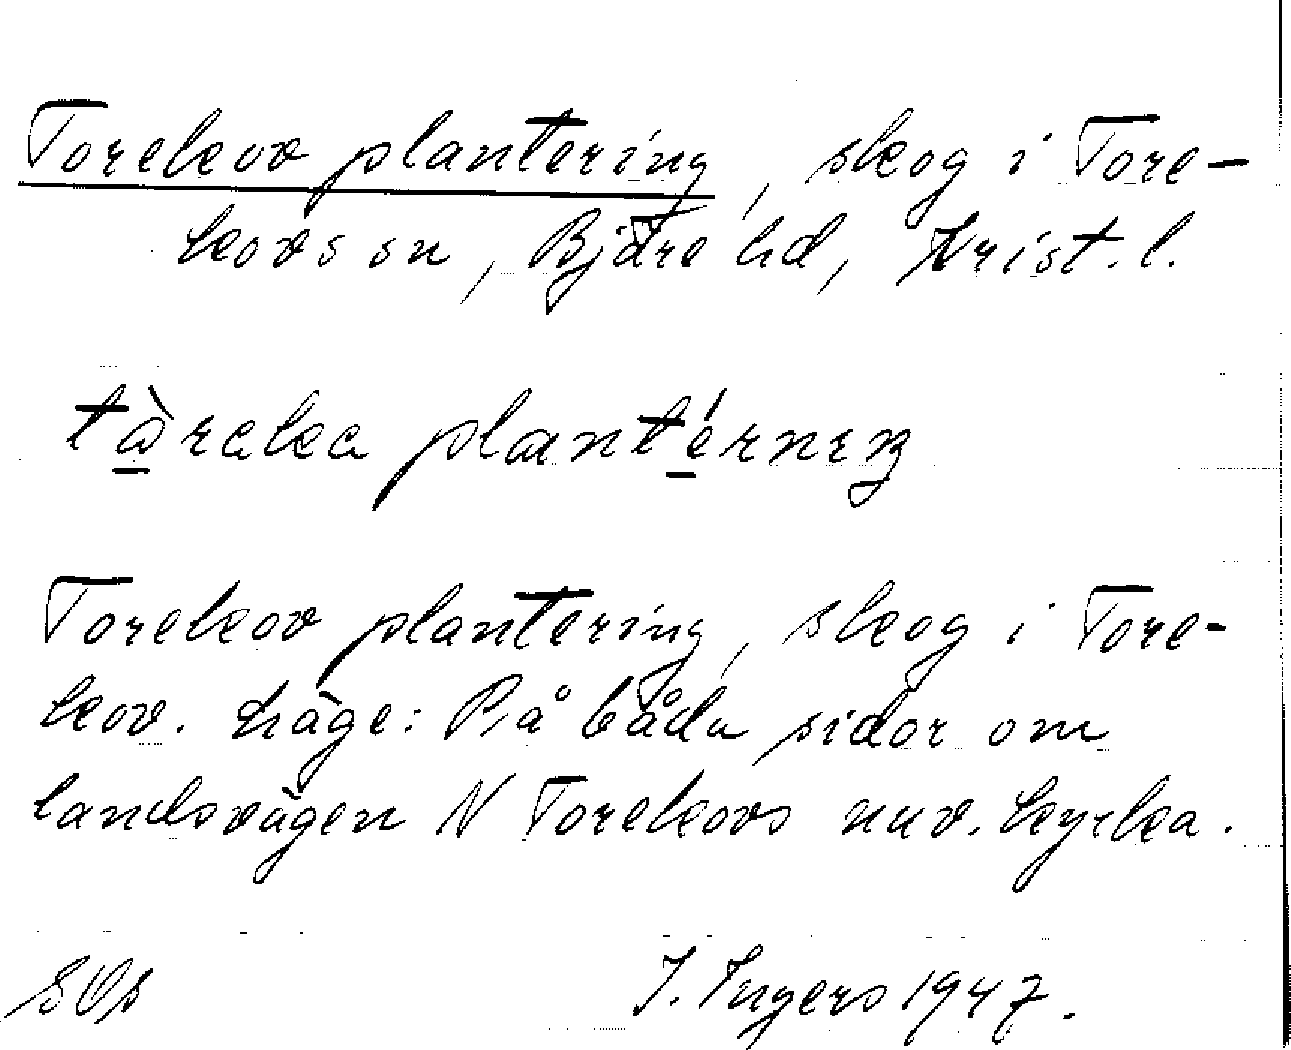 Torekov plantering, skog i Tore-
kovs sn, Bjäre hd, Krist. l.
tåreka plantérnıŋ
Torekov plantering, skog i Tore-
kov. Läge: På båda sidor om
landsvägen N Torekovs nuv. kyrka.
I. Ingers 1947.